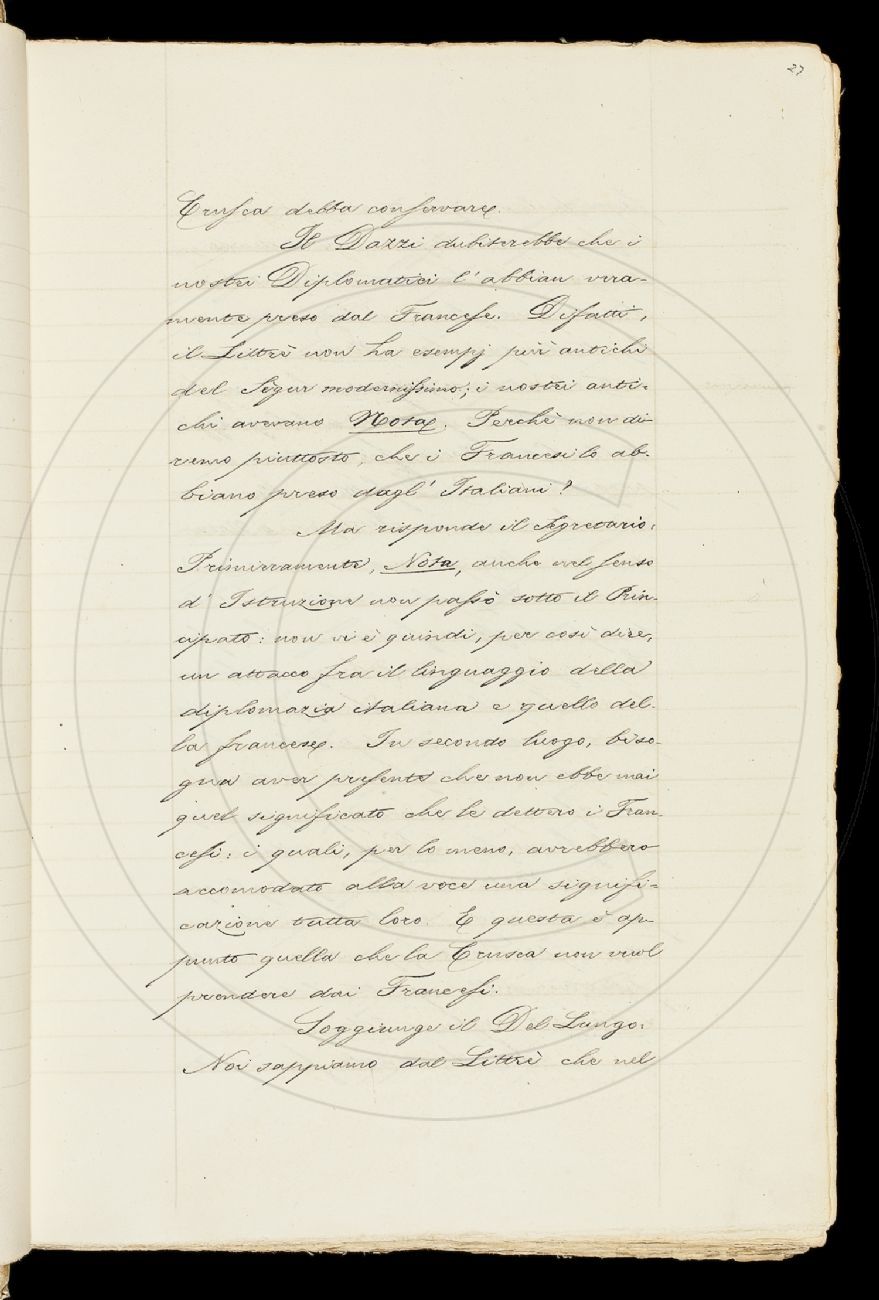 27
Crusca debba conservare.
Il Dazzi dubiterebbe che i
nostri Diplomatici l'abbian vera-
mente preso dal Francese. Difatti,
il Littrè non ha esempj più antichi
del Sègur modernissimo; i nostri anti-
chi avevano Nota. Perchè non di-
remo piuttosto, che i Francesi lo ab-
biano preso dagl' Italiani?
Ma risponde il Segretario:
Primieramente, Nota, anche nel senso
d' Istruzione non passò sotto il Prin-
cipato: non vi è quindi, per così dire,
un attacco fra il linguaggio della
diplomazia italiana e quello del-
la francese. In secondo luogo, biso-
gna aver presente che non ebbe mai
quel significato che le dettero i Fran-
cesi: i quali, per lo meno, avrebbero
accomodato alla voce una signifi-
cazione tutta loro. E questa è ap-
punto quella che la Crusca non vuol
prendere dai Francesi.
Soggiunge il Del Lungo:
Noi sappiamo dal Littrè che nel